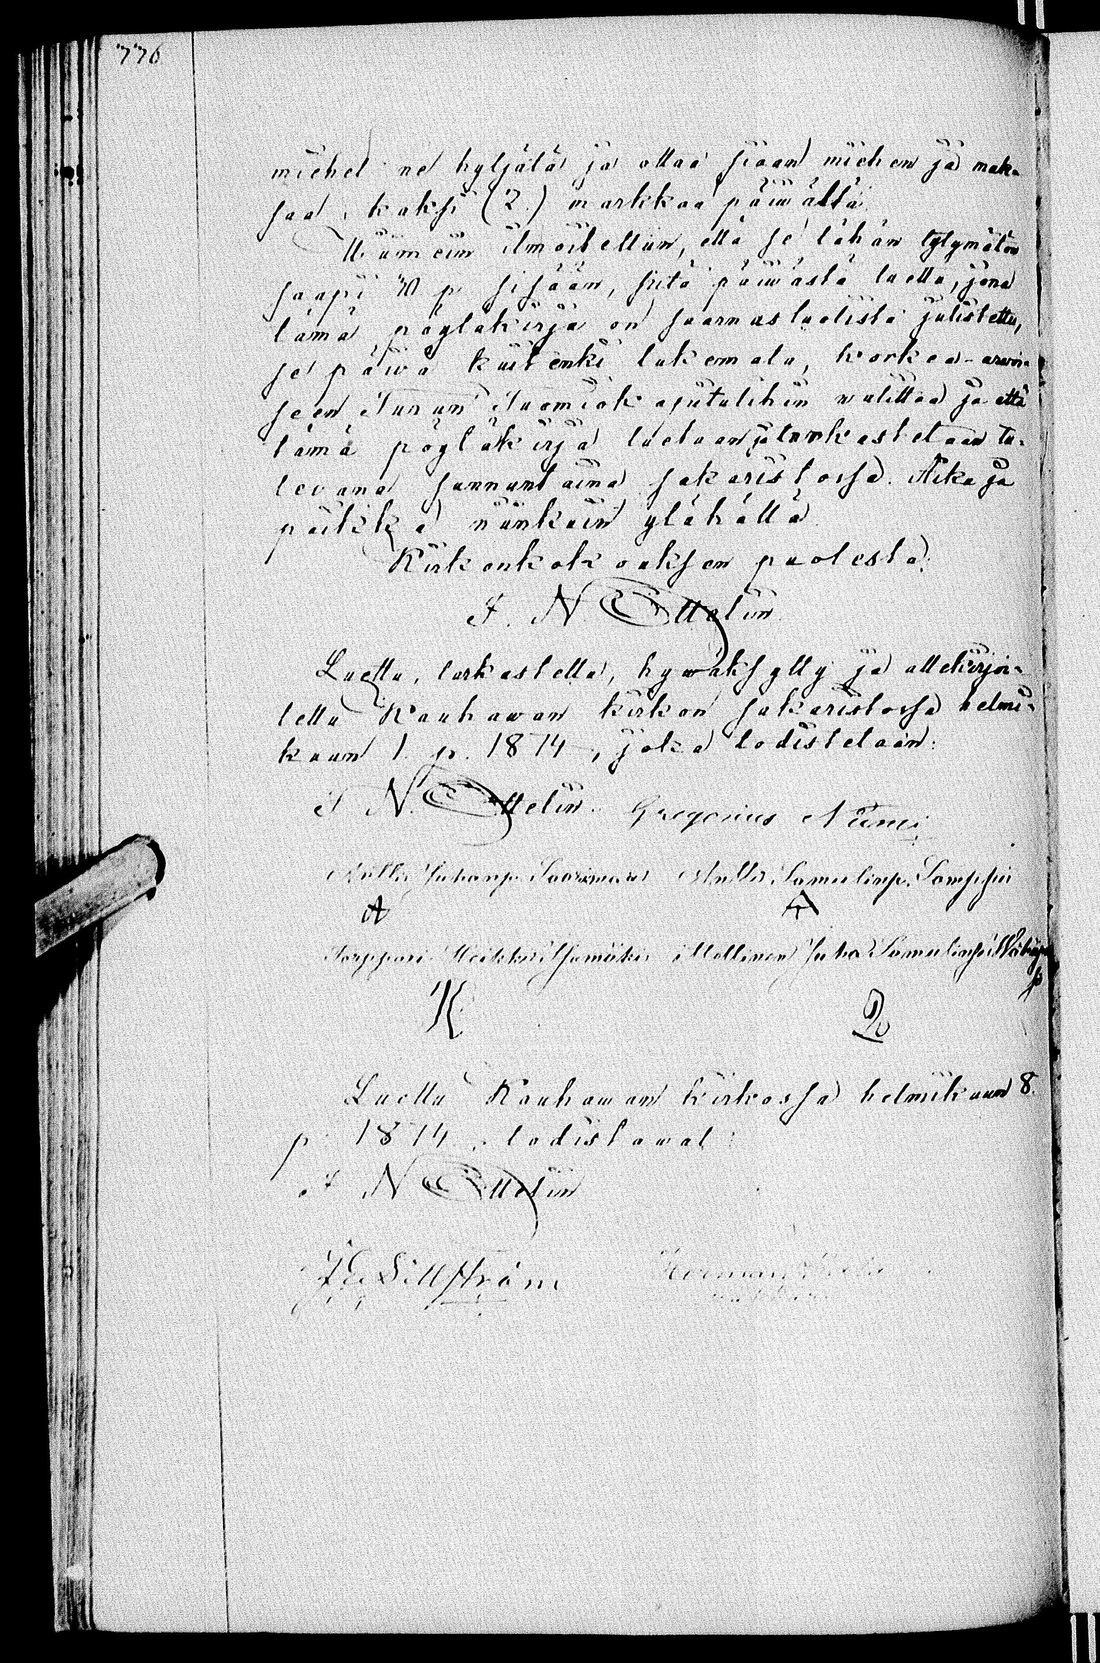 776
miehet ne hyljätä ja ottaa siaan miehen ja mak-
saa kaksi (2.) markkaa päiwältä.
Wiimein ilmoitettiin, että se tähän tytymätöin
saapi 30 p. sisään, siitä päiwästä luettu, jona
tämä pöytäkirja on saarnastuolista julistettu,
se päiwä kuitenki lukemata, korkea-arwoi-
seen Turun Tuomiok apitulihin walittaa ja että
tämä pöytäkirja luetaan ja tarkastetaan tu-
levana sunnuntaina sakaristossa. Aika ja
paikka niinkuin ylähällä
Kirkonkokouksen puolesta:
I. N. Ottelin.
Luettu, tarkastettu, hywäksytty ja allekirjoi-
tettu Kauhawan kirkon sakaristossa helmi-
kuun 1 p. 1874, joka todistetaan:
I N. Ottelin. Gregorius Niemi
Matti Juhanp. Saarimaa Antti Samulinp. Samppii
A A
Torppari Heikki Isomäki Mollinen Juha Samulinp.
H
Luettu Kauhawan kirkossa helmikuun 8.
p 1874, todistawat:
I N Ottelin
Sillström Herman